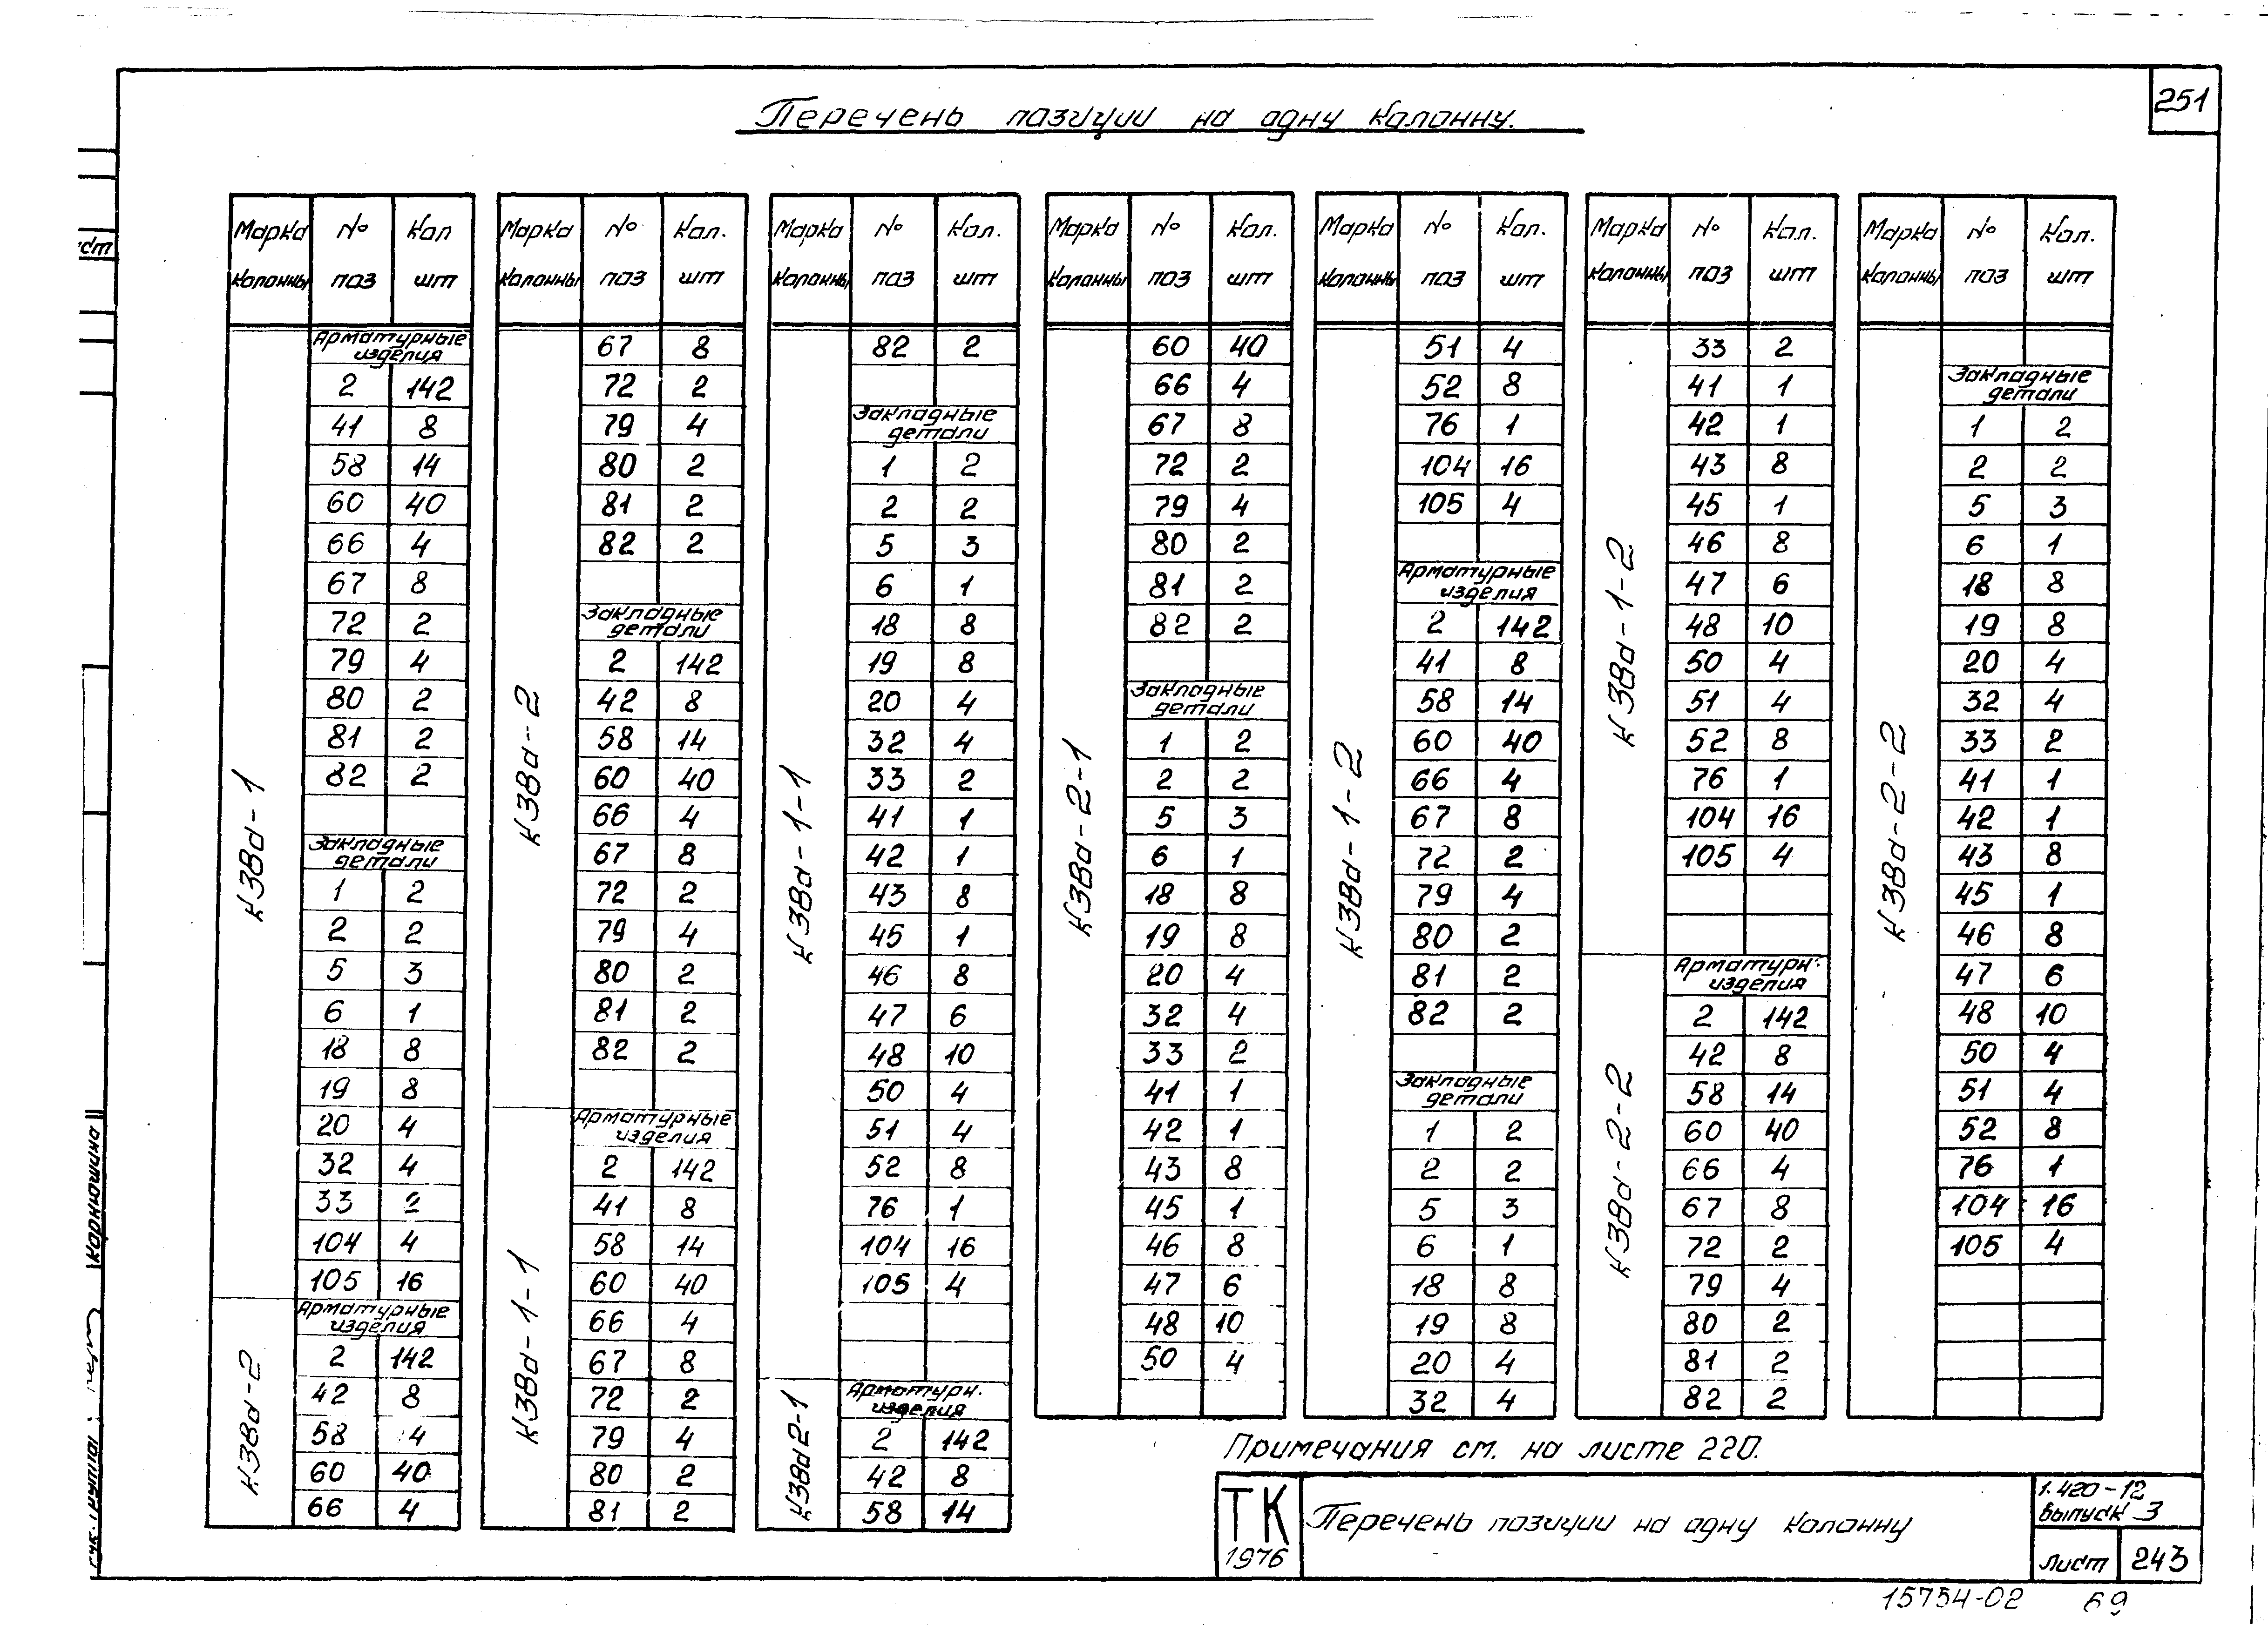 251
Перечень позиции на одну колонну.
Марка колонны № поз Кол шт
К38д-1
Арматурные изделия
2 142
41 8
58 14
60 40
66 4
67 8
72 2
79 4
80 2
81 2
82 2
Закладные детали
1 2
2 2
5 3
6 1
18 8
19 8
20 4
32 4
33 2
104 4
105 16
К38д-2
Арматурные изделия
2 142
42 8
58 4
60 40
66 4
Марка колонны № поз Кол. шт
К38д-2
67 8
72 2
79 4
80 2
81 2
82 2
Закладные детали
2 142
42 8
58 14
60 40
66 4
67 8
72 2
79 4
80 2
81 2
82 2
К38д-1-1
Арматурные изделия
2 142
41 8
58 14
60 40
66 4
67 8
72 2
79 4
80 2
81 2
Марка колонны № поз Кол. шт
К38д-1-1
82 2
Закладные детали
1 2
2 2
5 3
6 1
18 8
19 8
20 4
32 4
33 2
41 1
42 1
43 8
45 1
46 8
47 6
48 10
50 4
51 4
52 8
76 1
104 16
105 4
К38д2-1
Арматурн. изделия
2 142
42 8
58 14
Марка колонны № поз Кол. шт
К38д-2-1
60 40
66 4
67 8
72 2
79 4
80 2
81 2
82 2
Закладные детали
1 2
2 2
5 3
6 1
18 8
19 8
20 4
32 4
33 2
41 1
42 1
43 8
45 1
46 8
47 6
48 10
50 4
Марка колонны № поз Кол. шт
К38д-1-2
51 4
52 8
76 1
104 16
105 4
Арматурные изделия
2 142
41 8
58 14
60 40
66 4
67 8
72 2
79 4
80 2
81 2
82 2
Закладные детали
1 2
2 2
5 3
6 1
18 8
19 8
20 4
32 4
Марка колонны № поз Кол. шт
К38д-1-2
33 2
41 1
42 1
43 8
45 1
46 8
47 6
48 10
50 4
51 4
52 8
76 1
104 16
105 4
К38д-2-2
Арматурн. изделия
2 142
42 8
58 14
60 40
66 4
67 8
72 2
79 4
80 2
81 2
82 2
Марка колонны № поз Кол. шт
К38д-2-2
Закладные детали
1 2
2 2
5 3
6 1
18 8
19 8
20 4
32 4
33 2
41 1
42 1
43 8
45 1
46 8
47 6
48 10
50 4
51 4
52 8
76 1
104 16
105 4
Примечания см. на листе 220.
ТК
1976
Перечень позиции на одну колонну
1.420-12
выпуск 3
лист 243
15754-02 69
Карнюшина